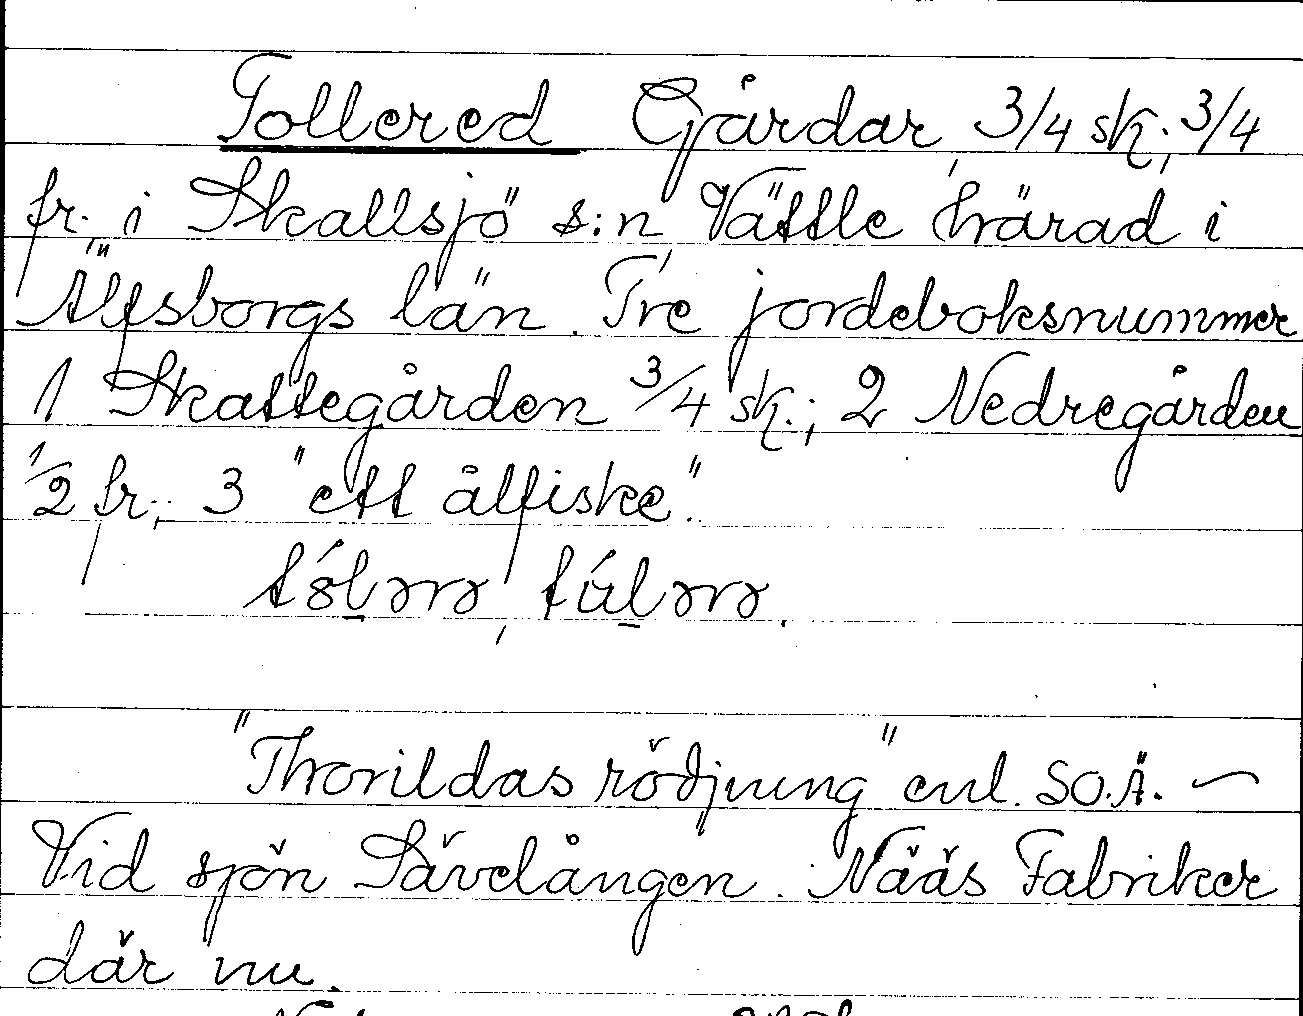 Tollered Gårdar, 3/4 sk.; 3/4
fr. i Skallsjö s:n, Vättle härad i
Älfsborgs län. Tre jordeboksnummer
1 Skattegården 3/4 sk.; 2 Nedregården
1/2 fr.; 3 "ett ålfiske".
"Thorildas rödjning" enl. SOÄ. —
Vid sjön Sävelången. Nääs Fabriker
där nu.